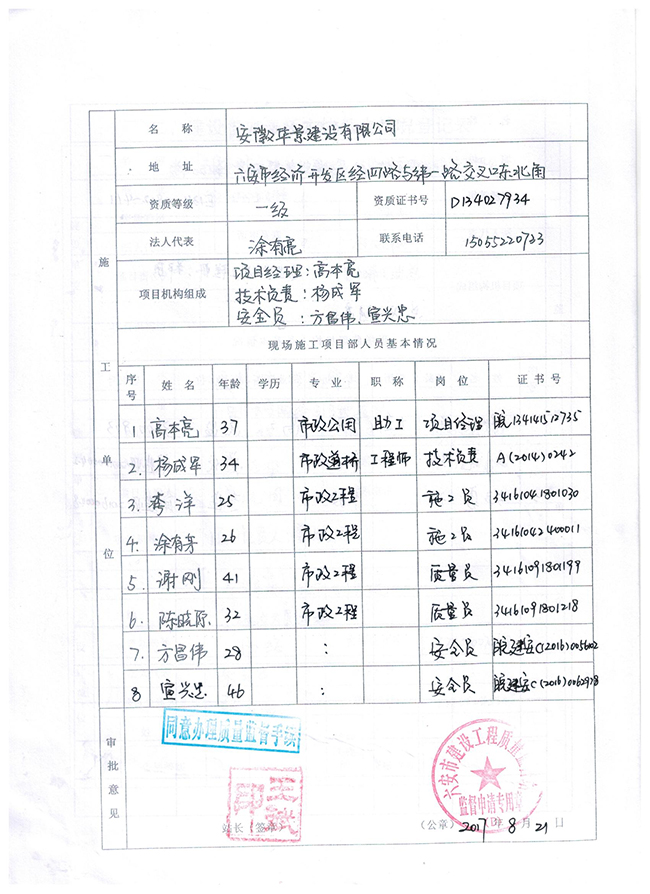 名 称 安徽华景建设有限公司
地 址 六安市经济开发区经四路与纬一路交叉口东北角
资质等级 一级 资质证书号 D134027934
法人代表 涂有亮 联系电话 15055220723
施工单位
项目机构组成 项目经理:高本亮
技术负责:杨成军
安全员:方昌伟、宣兴忠
现场施工项目部人员基本情况
序号 姓名 年龄 学历 专业 职称 岗位 证书号
1 高本亮 37 市政公用 助工 项目经理 皖134141512735
2. 杨成军 34 市政道桥 工程师 技术负责 A(2014)0242
3. 李洋 25 市政工程 施工员 34161041801030
4. 涂有 26 市政工程 施工员 34161042400011
5. 谢刚 41 市政工程 质量员 34161091801199
6. 陈晓原 32 市政工程 质量员 34161091801218
7. 方昌伟 28 : 安全员 皖建安C(2016)
8 宣兴忠 46 : 安全员 皖建安C(2016)
审批意见
同意办理质量监督手续
六安市建设工程质量
监督申请专用
站长(签章) (公章) 2017年8月21日